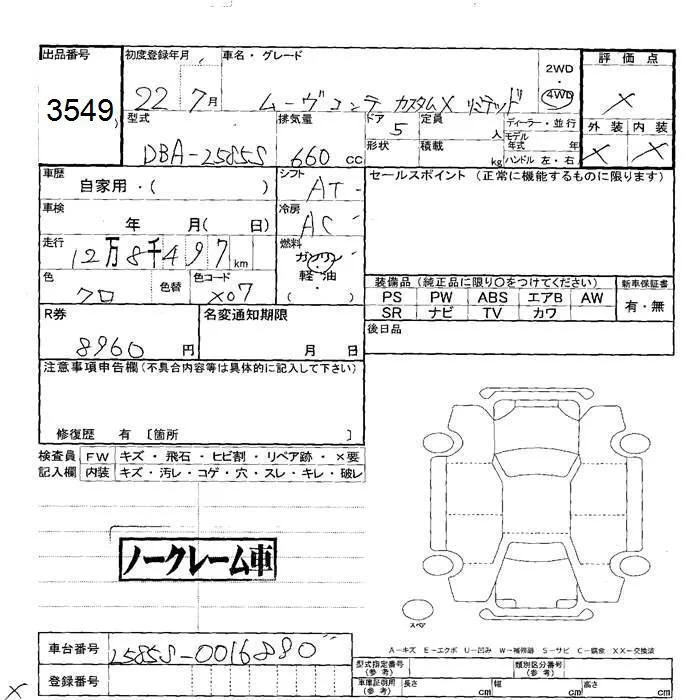 出品番号 初度登録年月 車名・グレード 評価点
3549 22 7月 ムーヴコンテ カスタムX リミテッド 2WD・4WD ×
型式 排気量 ドア 定員 ディーラー・並行 外装 内装
DBA-L585S 660 cc 5 人 モデル年式 年 × ×
形状 積載 kg ハンドル 左・右
車歴 シフト セールスポイント (正常に機能するものに限ります)
自家用・( ) AT
車検 冷房
年 月( 日) AC
走行 燃料
12万8千497km ガソリン・軽油
( )
色 色替 色コード 装備品(純正品に限り○をつけてください) 新車保証書
クロ X07 PS PW ABS エアB AW 有・無
SR ナビ TV カワ
R券 名変通知期限 後日品
8960円 月 日
注意事項申告欄(不具合内容等は具体的に記入して下さい)
修復歴 有 〔箇所 〕
検査員 FW キズ・飛石・ヒビ割・リペア跡・×要
記入欄 内装 キズ・汚レ・コゲ・穴・スレ・キレ・破レ
ノークレーム車
スペア
A-キズ E-エクボ U-凹み W-補修跡 S-サビ C-腐食 XX-交換済
車台番号 L585S-0016880
登録番号
型式指定番号(参考) 類別区分番号(参考)
車庫証明用(参考) 長さ cm 幅 cm 高さ cm
×